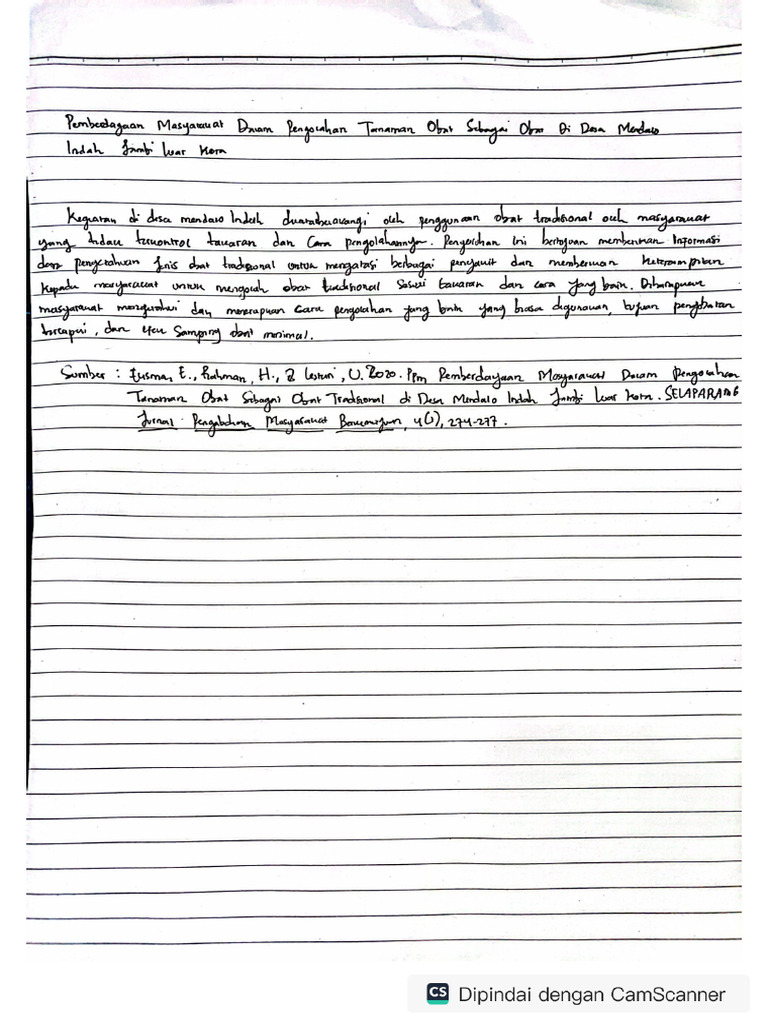 Pemberdayaan Masyarakat Dalam Pengolahan Tanaman Obat Sebagai Obat Di Desa Mendalo
Indah Jambi Luar Kota
Kegiatan di desa mendalo Indah dilatarbelakangi oleh penggunaan obat tradisional oleh masyarakat
yang tidak terkontrol takaran dan Cara pengolahannya. Pengabdian Ini bertujuan memberikan Informasi
dan pengetahuan Jenis obat tradisional untuk mengatasi berbagai penyakit dan memberikan keterampilan
kepada masyarakat untuk mengolah obat tradisional Sesuai takaran dan cara yang baik. Diharapkan
masyarakat mengetahui dan menerapkan Cara pengolahan yang baik yang biasa digunakan, tujuan pengobatan
tercapai, dan efek Samping obat minimal.
Sumber : Yusma, E., Rahman, H., & Lestari, U. 2020. Ppm Pemberdayaan Masyarakat Dalam Pengolahan
Tanaman Obat Sebagai Obat Tradisional di Desa Mendalo Indah Jambi Luar Kota. SELAPARANG
Jurnal Pengabdian Masyarakat Berkemajuan, 4(1), 274-277.
CS Dipindai dengan CamScanner